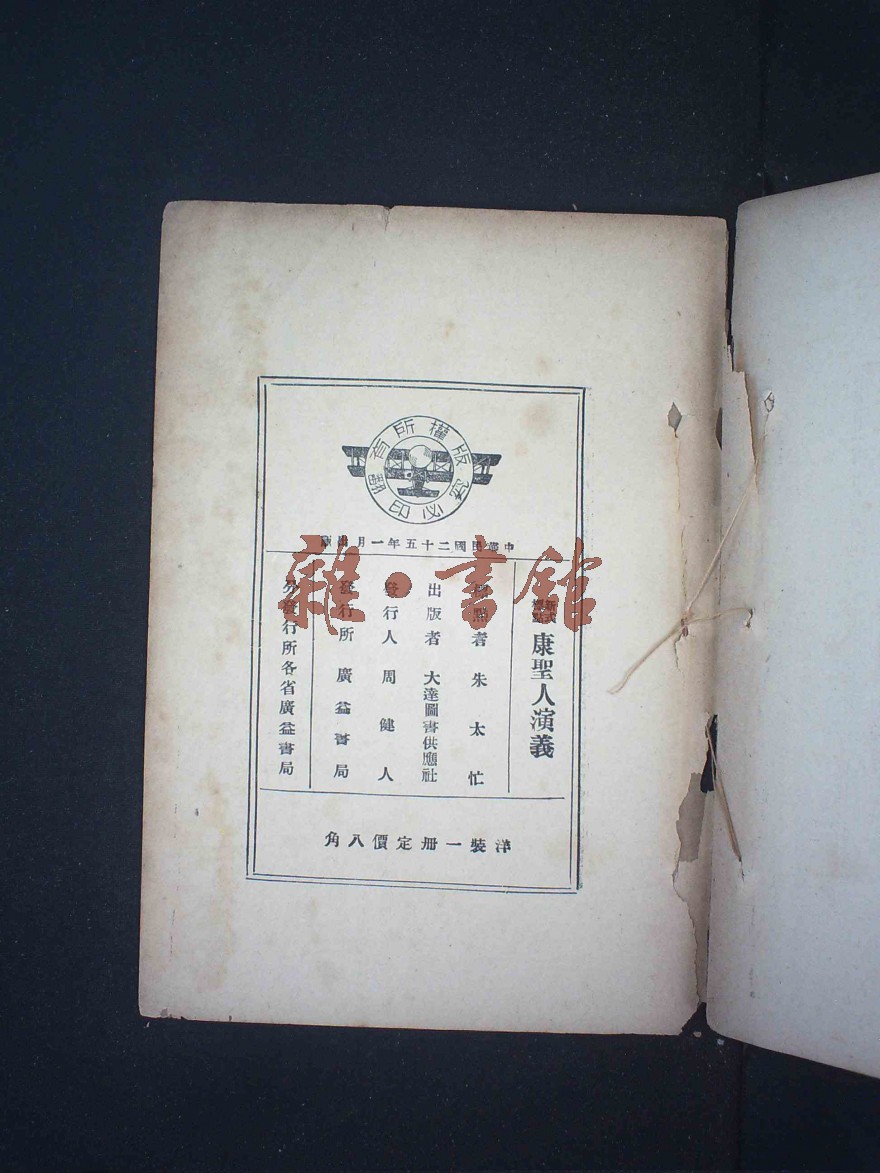 版權所有
翻印必究
中華民國二十五年一月出版
新式標點 康聖人演義
標點者 朱太忙
出版者 大達圖書供應社
發行人 周健人
發行所 廣益書局
分發行所各省廣益書局
洋裝一册定價八角
雜·書館